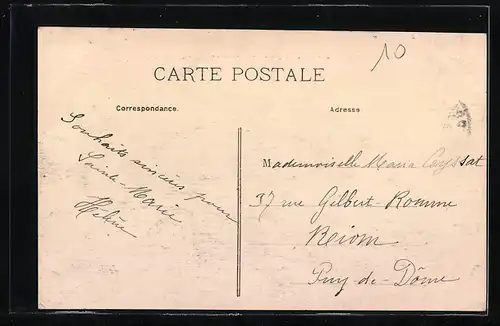 10
CARTE POSTALE
Correspondance.
Adresse
Souhaits sincères pour
Sainte-Marie
Hélène
Mademoiselle Maria Ceyssat
37 rue Gilbert-Romme
Reiom
Puy-de-Dôme